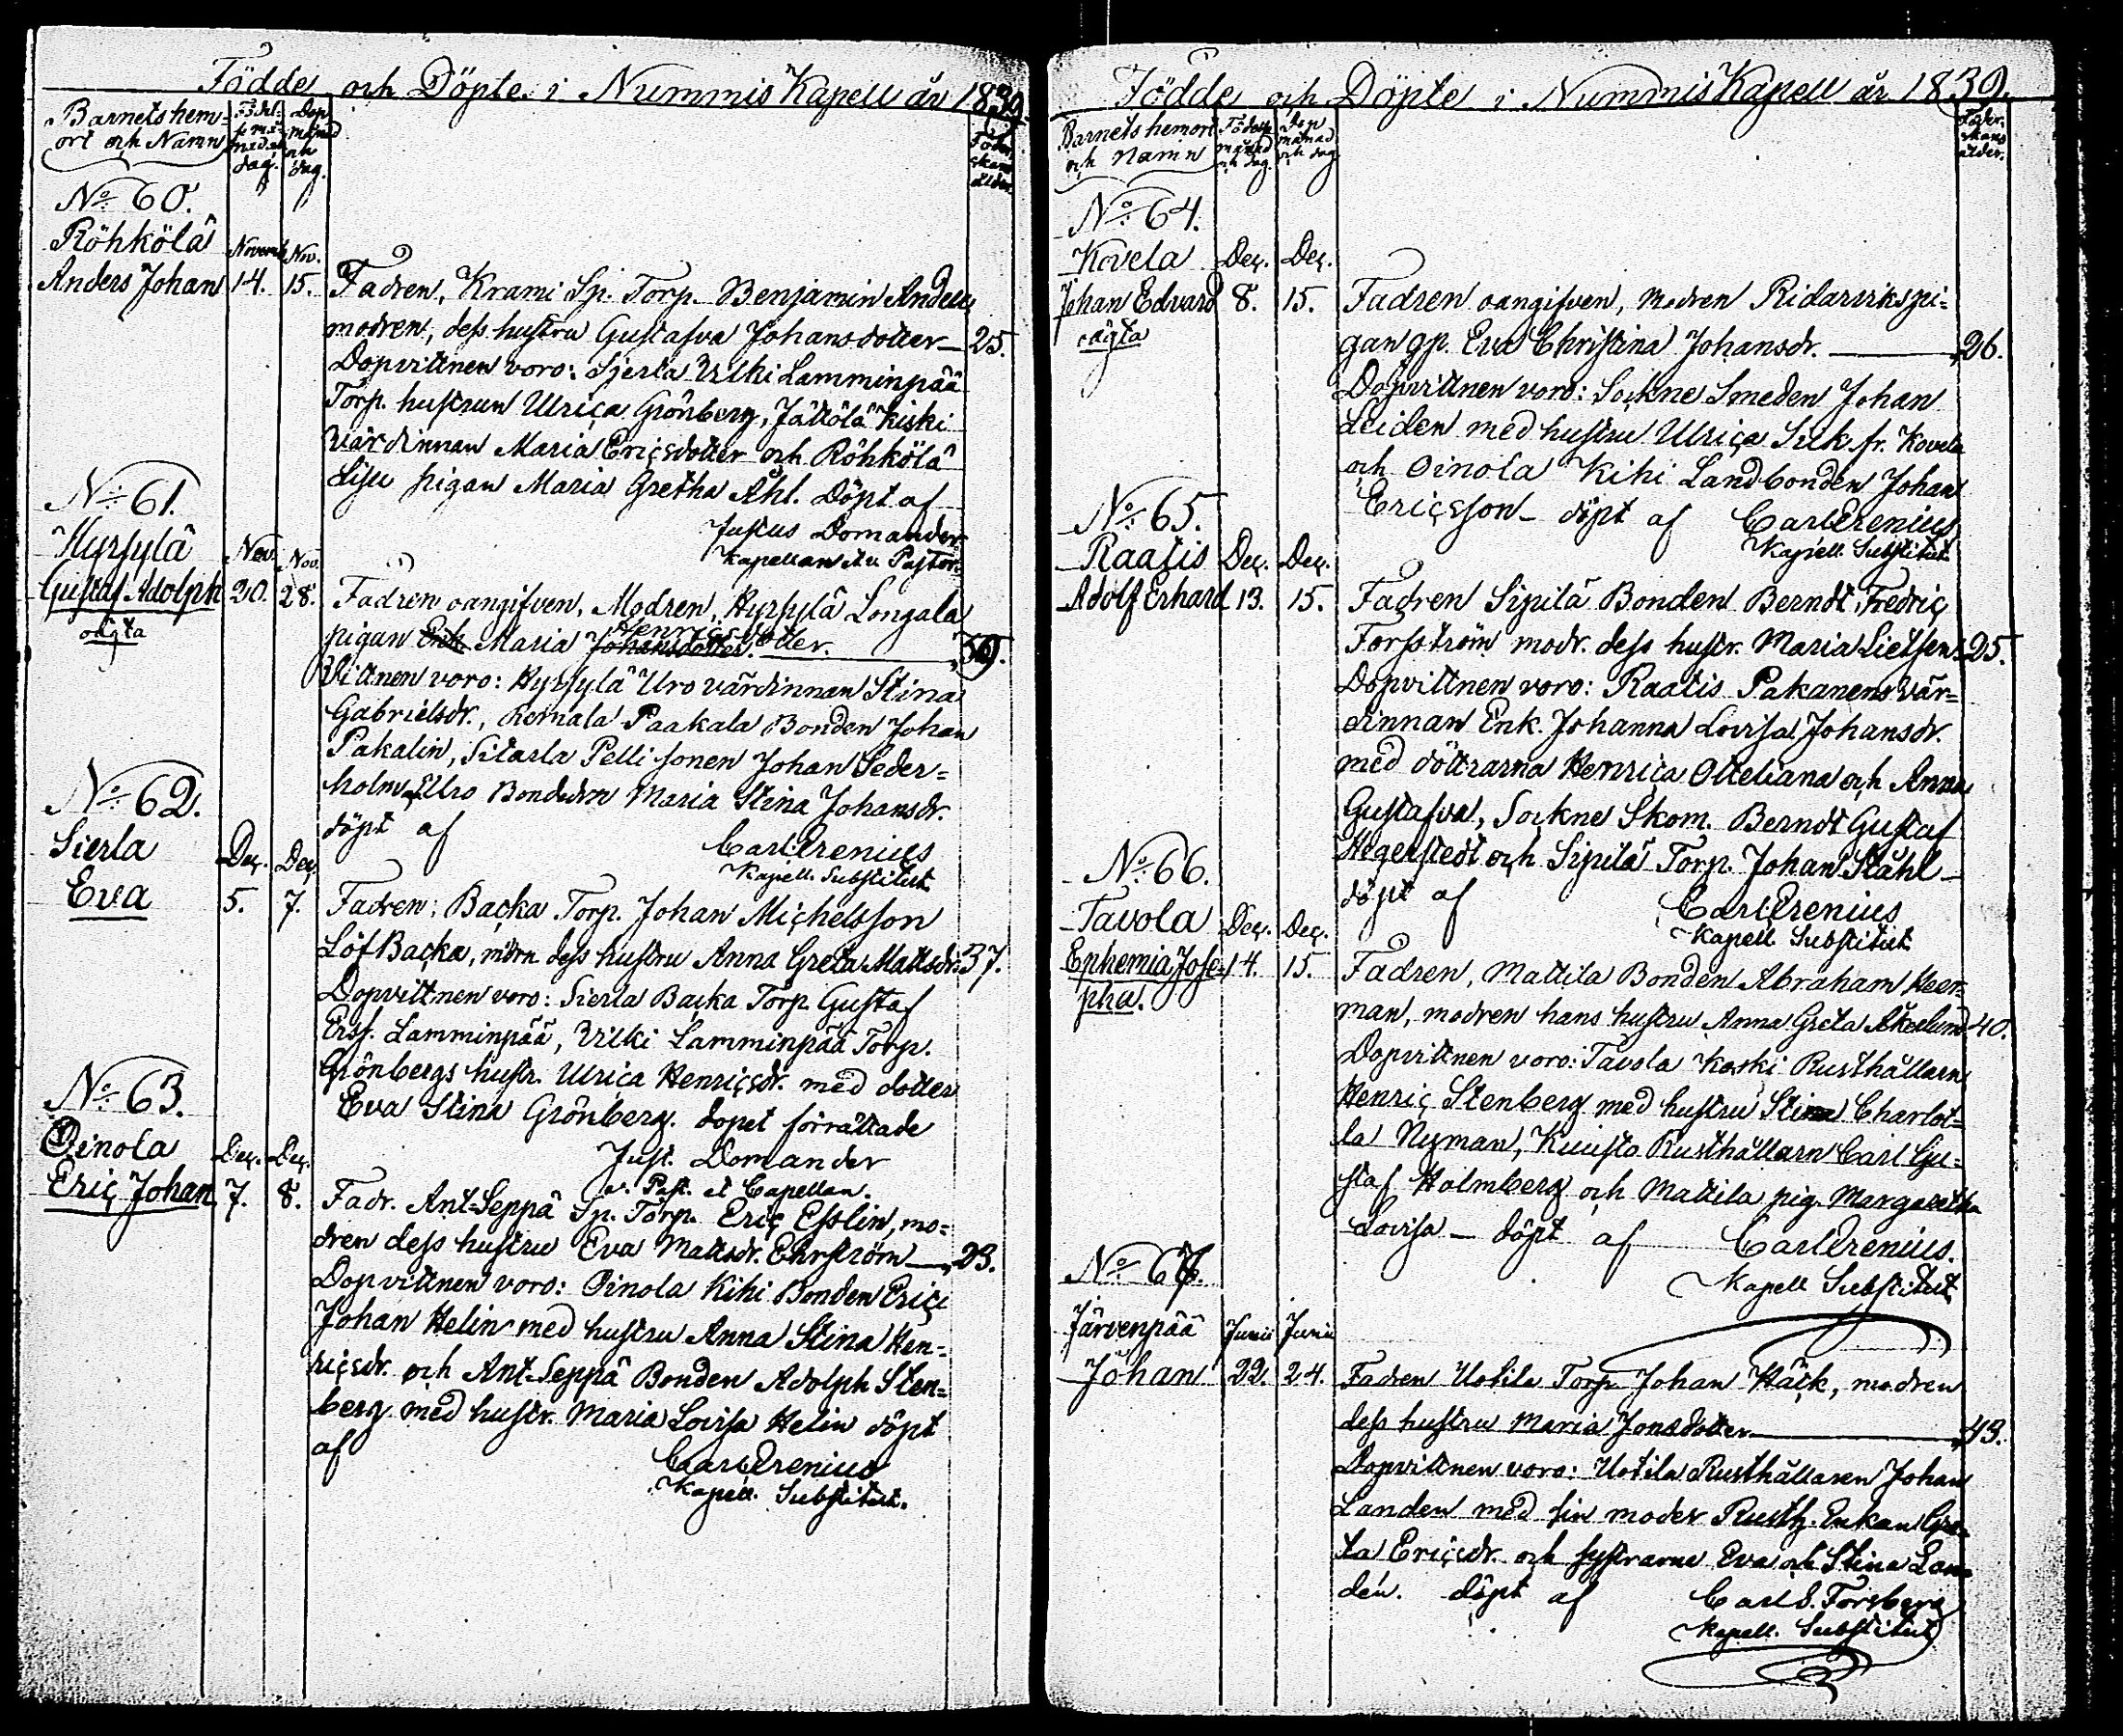 Födde och Döpte i Nummis Kapell år 1839.
Barnets hem-
ort och Namn
Födel-
se må-
nad och
dag.
Dop
månad
och
dag.
Föder-
skans
ålder.
No 60.
Röhkölä Novemb. Nov.
Anders Johan 14. 15. Fadren, Krami Sp. Torp. Benjamin Anders
modren, dess hustru Gustafva Johansdotter — 25.
Dopvittnen voro: Sjerla Uilki Lamminpää
Torp. hustrun Ulrica Grönberg, Jättölä Kiski
värdinnan Maria Ericsdotter och Röhkölä
Lisu pigan Maria Gretha Ahl. Döpt af
Justus Domander
Kapellan et v. Pastor.
No 61.
Hyrsylä Nov. Nov.
Gustaf Adolph 20. 28. Fadren oangifven, Modren, Hyrsylä Longala
oägta
pigan Enk. Maria Johansdotter. Henricsdotter. — 39.
Vittnen voro: Hyrsylä Uro värdinnan Stina
Gabrielsdr., Remala Paakala Bonden Johan
Pakalin, Sitarla Pelli sonen Johan Seder=
holm, Uro Bondedrn Maria Stina Johansdr.
döpt af Carl Orenius
Kapell. Substitut.
No 62.
Sierla Dec. Dec.
Eva 5. 7. Fadren: Backa Torp. Johan Michelsson
Löf Backa, mdrn dess hustru Anna Greta Mattsdr. 37.
Dopvittnen voro: Sierla Backa Torp. Gustaf
Erss. Lamminpää, Uilki Lamminpää Torp.
Grönbergs hustr. Ulrica Henricsdr. med dotter
Eva Stina Grönberg. dopet förrättade
Just. Domander
v. Past. et Capellan.
No 63.
Oinola Dec. Dec.
Eric Johan 7. 8. Fadr. Ant-Seppä Sp. Torp. Eric Esslin, mo=
dren dess hustru Eva Mattsdr. Ehrström — 23.
Dopvittnen voro: Oinola Kihi Bonden Eric
Johan Helin med hustru Anna Stina Hen=
ricsdr. och Ant-Seppä Bonden Adolph Sten=
berg med hustr. Maria Lovisa Helin döpt
af Carl Orenius
Kapell. Substitut.
Födde och Döpte i Nummis Kapell år 1839.
Barnets hemort
och Namn
Födelse
månad
och dag.
Dop
månad
och dag
Föder-
skans
ålder.
No 64.
Kovela Dec. Dec.
Johan Edvard 8. 15. Fadren oangifven, modren Ridarvikspi=
oägta
gan gp. Eva Christina Johansdr. — 26.
Dopvittnen voro: Sockne Smeden Johan
Leiden med hustru Ulrica Silk. fr. Kovela
och Oinola Kihi Landbonden Johan
Ericsson — döpt af Carl Orenius
Kapell. Substitut
No 65.
Raatis Dec. Dec.
Adolf Erhard 13. 15. Fadren Sipilä Bonden Berndt Fredric
Forsström modr. dess hustr. Maria Lietsen 25.
Dopvittnen voro: Raatis Pakanens vär=
dinnan Enk. Johanna Lovisa Johansdr.
med döttrarna Henrica Otteliana och Anna
Gustafva, Sockne Skom. Berndt Gustaf
Hegerstedt och Sipilä Torp. Johan Ståhl —
döpt af Carl Orenius
Kapell Substitut.
No 66.
Tavola Dec. Dec.
Ephemia Jose= 14. 15. Fadren, Mattila Bonden Abraham Heer-
pha.
man, modren hans hustru Anna Greta Åkerlund 40.
Dopvittnen voro: Tavola Koski Rusthållarn
Henric Stenberg med hustru Stina Charlot=
ta Nyman, Kuusto Rusthållarn Carl Gu=
staf Holmberg och Mattila pig. Margaretha
Lovisa — döpt af Carl Orenius.
Kapell Substitut
No 67.
Järvenpää Junii Junii
Johan 22. 24. Fadren Uotila Torp. Johan Häck, modren
dess hustru Maria Jonasdotter — 43.
Dopvittnen voro: Uotila Rusthållaren Johan
Landen med sin moder Rusth. Enkan Gre=
ta Ericsdr. och systrarne Eva och Stina Lan=
dén. döpt af Carl S. Forsberg
Kapell. Substitut